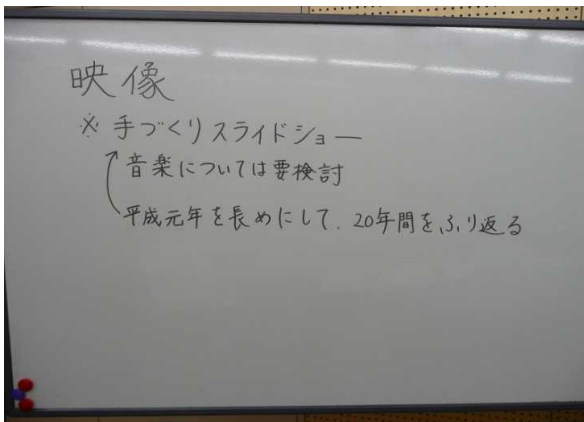 映像
※手づくりスライドショー
音楽については要検討
平成元年を長めにして、20年間をふり返る